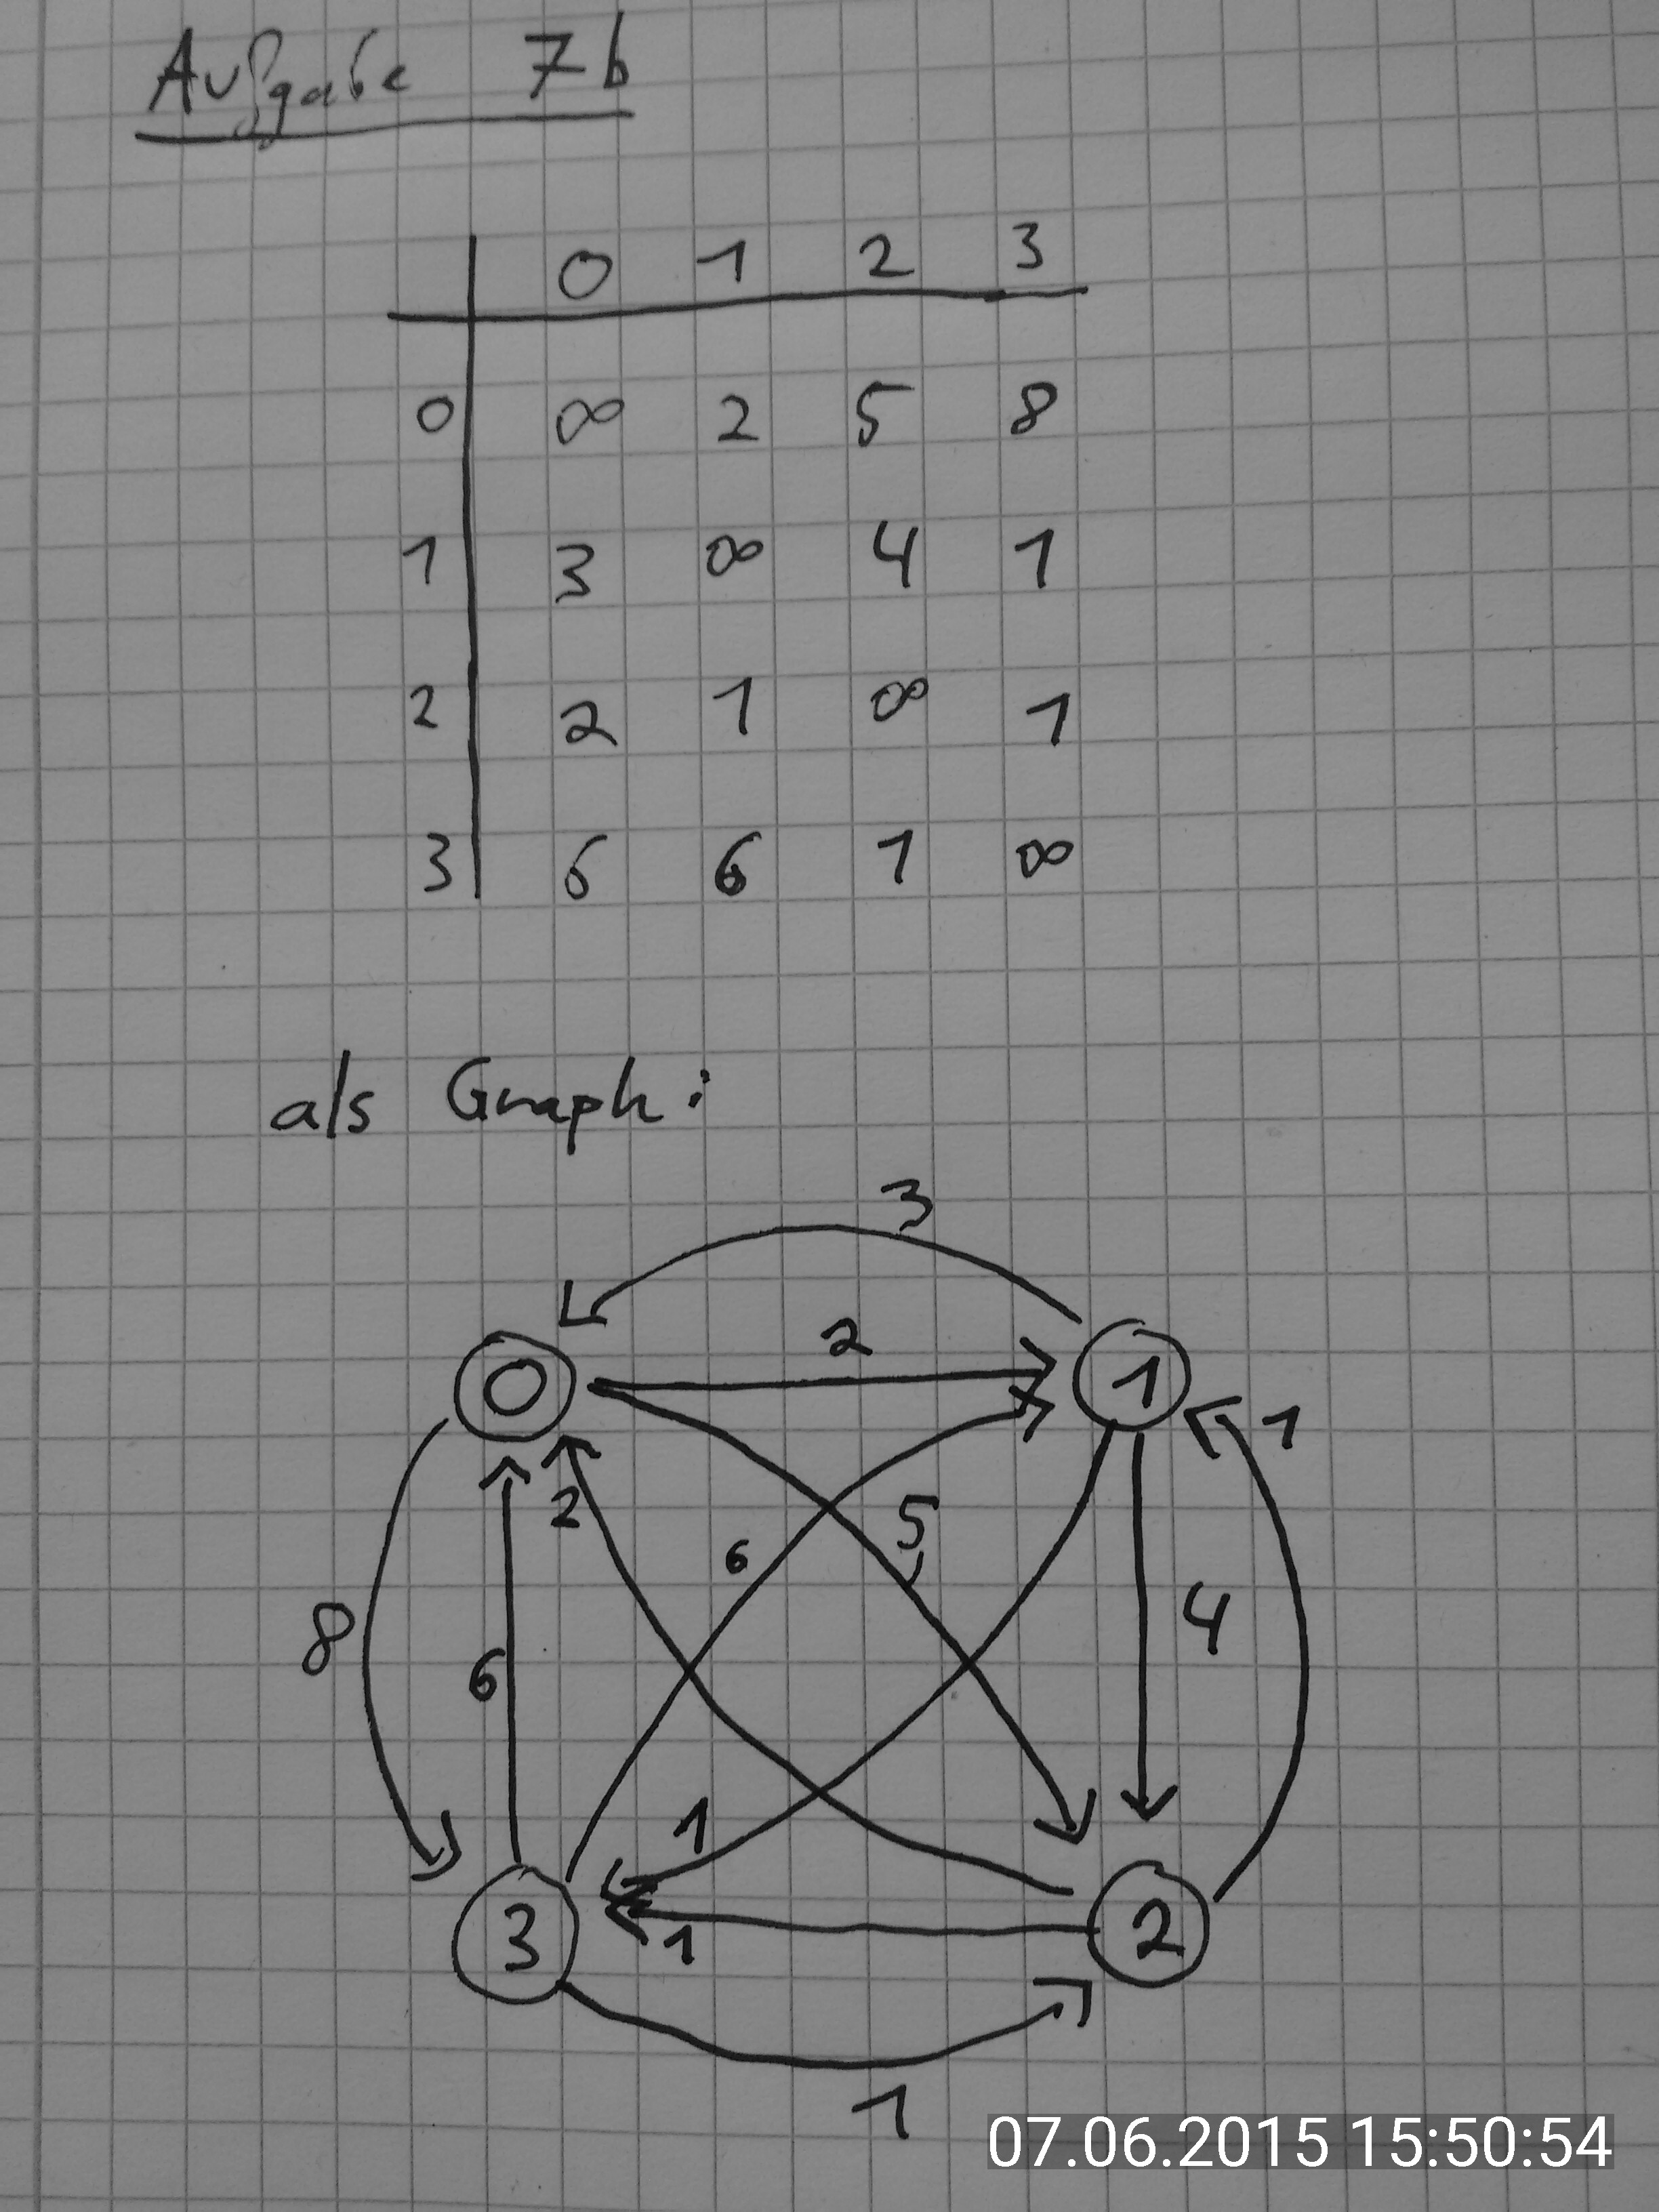 Aufgabe 7b
0 1 2 3
0 ∞ 2 5 8
1 3 ∞ 4 1
2 2 1 ∞ 1
3 6 6 1 ∞
als Graph:
3
2
0 1
1
2
5
6
4
8
6
1
3 1 2
1
07.06.2015 15:50:54